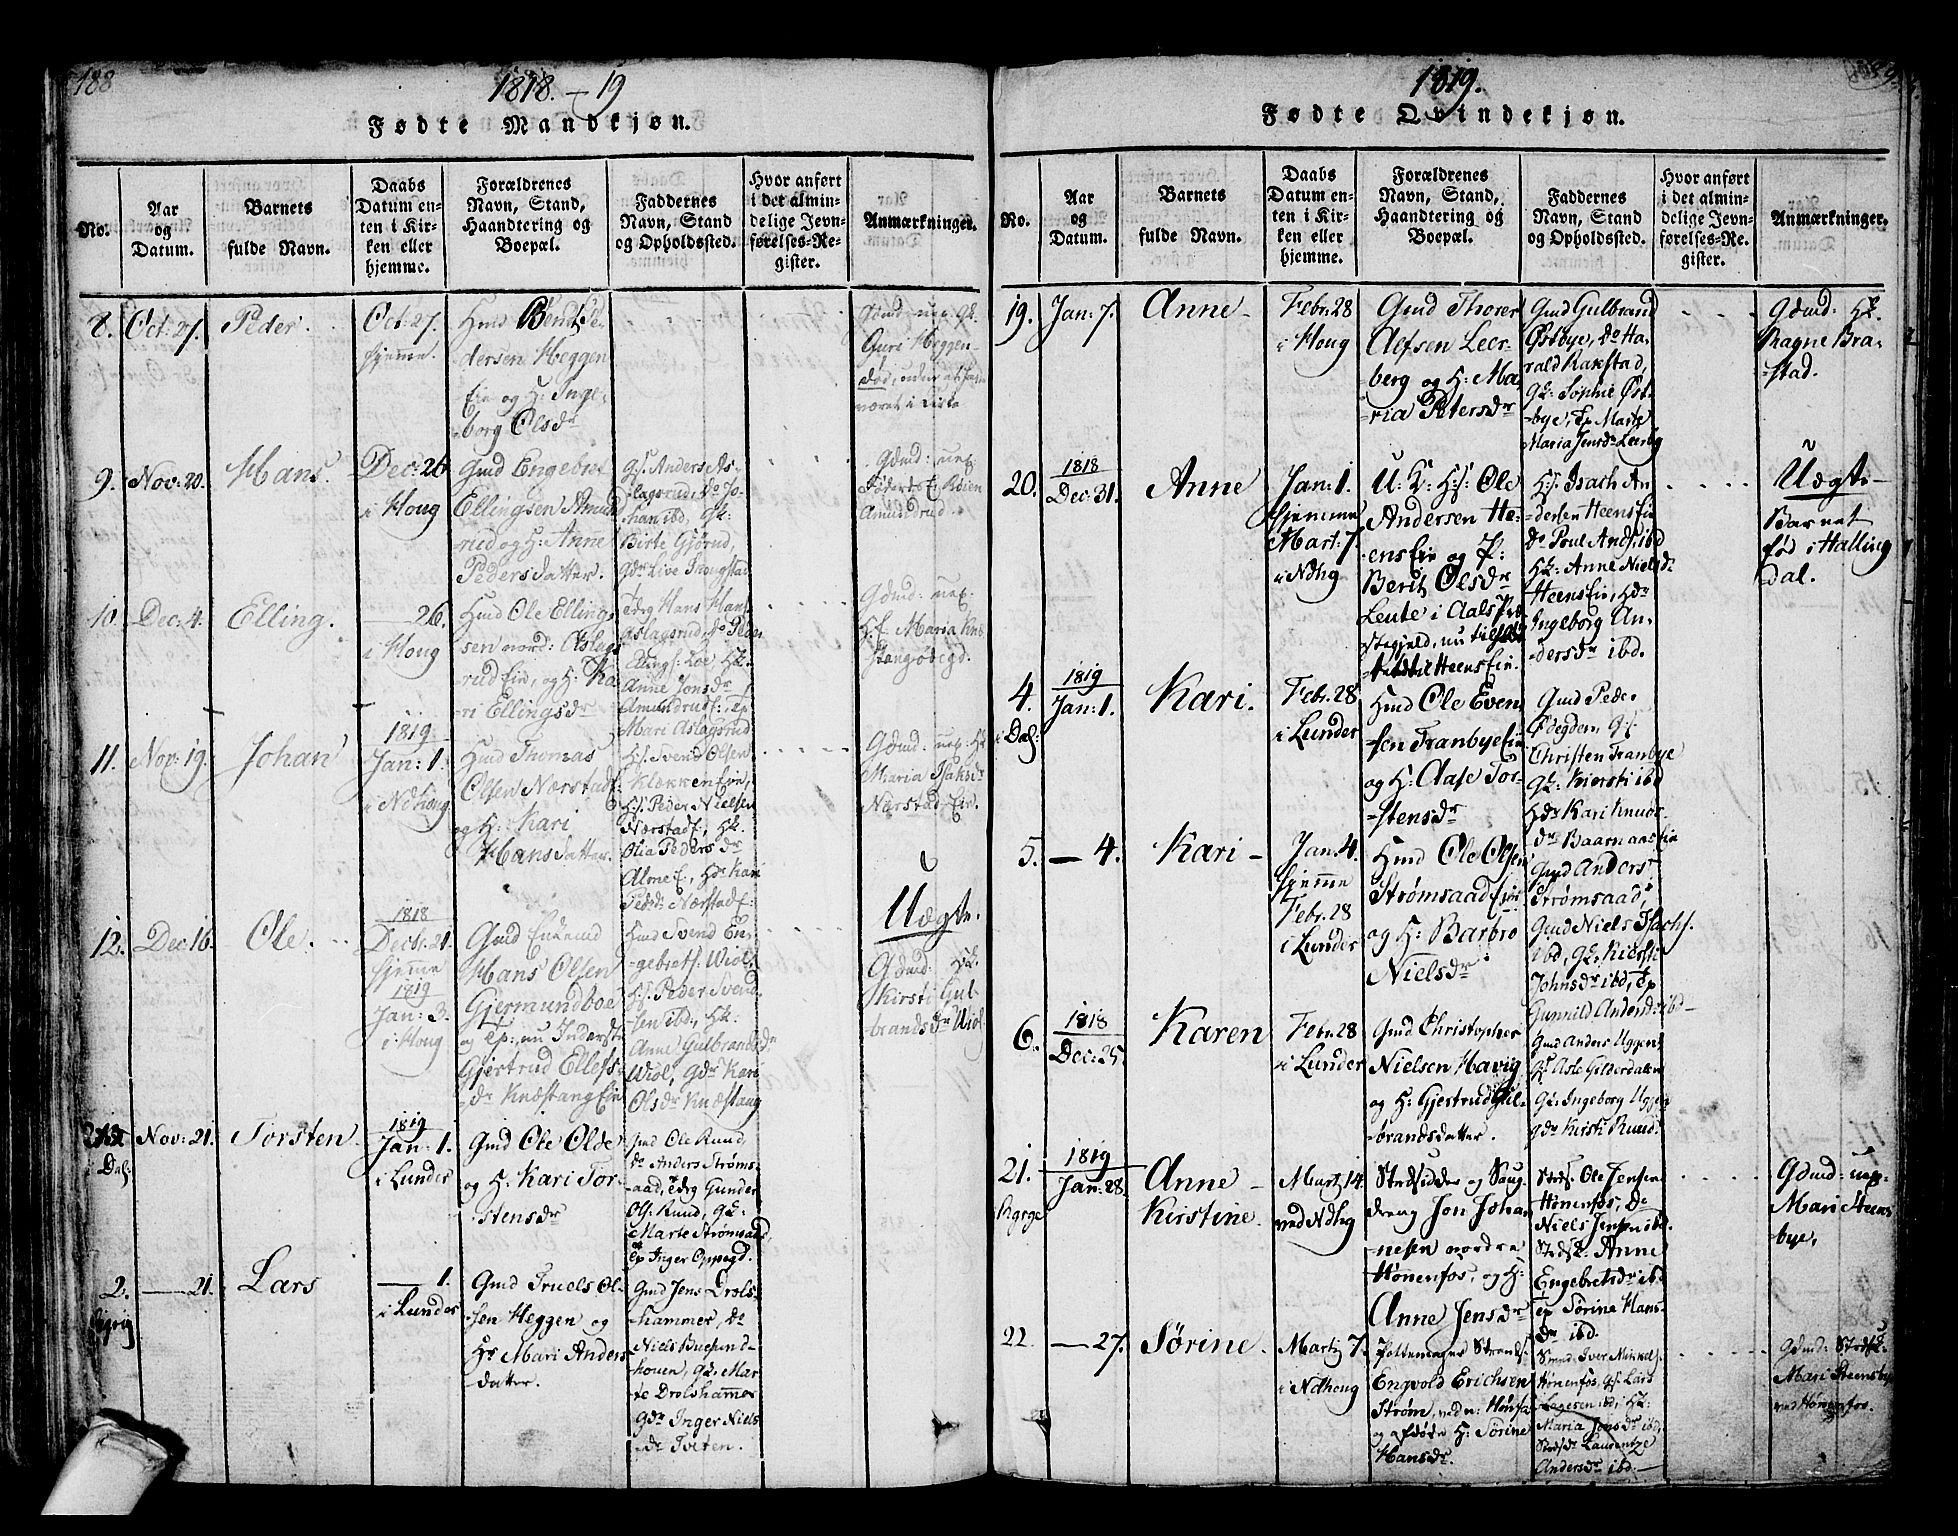 188
1818. - 19
Fødte Mandkjøn.
No.
Aar
og
Datum.
Barnets
fulde Navn.
Daabs
Datum en-
ten i Kir-
ken eller
hjemme.
Forældrenes
Navn, Stand,
Haandtering og
Boepæl.
Faddernes
Navn, Stand
og Opholdssted.
Hvor anført
i det almin-
delige Jevn-
førelses-Re-
gister.
Anmærkninger.
8. Oct: 27. Peder.
Oct: 27.
hjemme.
Hmd Bendt Pe-
dersen Heggen
Eie og H: Inge-
borg Olsdr
Guri Heggen-
9. Nov: 20. Hans.
Dec: 26
i Houg
Gmd Engebret
Ellingsen Amund
rud og H: Anne
Pedersdatter.
Gf. Anders As-
slagsrud, do Jo-
han ibd, Gk:
Birte Gjørud,
Gdr Live Trongstad
Amundrud.
10. Dec: 4. Elling.
— 26.
i Houg
Hmd Ole Elling-
sen nord: Aslags
rud Eie, og H: Ka
ri Ellingsdr
Tdrg Hans Hans
Aslagsrud, do Peder
Ellings: Loe Hk.
Anne Jonsdr
Amundrud: Ep
Mari Aslagsrud
11. Nov: 19. Johan
1819
Jan: 1.
i Ndhoug
Hmd Thomas
Olsen Nærstadf.
og H: Kari
Hansdatter.
Hf. Svend Olsen
Klækken Eie,
Hf. Peder Nielsen
Nærstadf., Hk.
Olia Pedersdr
Alme E., Hdr Kari
Pedsdr Nærstadf:
Maria Isaksdr
Nærstad Eie.
12. Dec: 16. Ole.
1818
Decb: 21.
hjemme
1819
Jan: 3.
i Houg
Gmd Enkemd
Hans Olsen
Gjermundboe
og Ep: nu Inderst
Gjertrud Ellefs-
dr Knæstang Eie
Hmd Svend En-
gebretf. Wiol,
Hf. Peder Svend-
sen ibd, Hk:
Anne Gulbrandsdr
Wiol, Gdr Kari
Olsdr Knæstang
Uægte.
Gdmd: Hk.
Kirsti Gul-
brandsdr Wiol
i Dal:
Nov: 21. Torsten.
1819
Jan: 1.
i Lunder
Gmd Ole Olde
og H: Kari Tor-
stensdr
Gmd Ole Ruud
do Anders Strøms-
aad, Tdrg Gunder
Og: Ruud, Gk:
Marte Strømsaad,
Ep Inger Oppegd.
2. — 21. Lars
— 1.
i Lunder
Gmd Truels Ol-
sen Heggen og
H: Mari Anders
datter.
Gmd Jens Drols-
hammer, do
Niels Buesund-
houen, Gk: Mar
te Drolshammer
Gdr Inger Niels
dr Tveten.
1819.
Fødte Qvindekjøn.
No.
Aar
og
Datum.
Barnets
fulde Navn.
Daabs
Datum en-
ten i Kir-
ken eller
hjemme.
Forældrenes
Navn, Stand,
Haandtering og
Boepæl.
Faddernes
Navn, Stand
og Opholdssted.
Hvor anført
i det almin-
delige Jevn-
førelses-Re-
gister.
Anmærkninger.
19. Jan: 7. Anne
Febr: 28
i Houg
Gmd Thorer
Olefsen Leer-
berg og H: Ma-
ria Petersdr
Gmd Gulbrand
Østbye, do Ha-
rald Rakstad,
Gk: Sophie Øst-
bye, Ep Marte
Maria Jensdr Leerbg
Gdmd: Hk.
Ragne Bra-
stad.
20. 1818
Dec: 31. Anne
Jan: 1.
hjemme
Mart: 7
i Ndhg
U: K: Hf: Ole
Andersen He-
ens Eie og P:
Berit Olsdr
Leute i Aals Præ
stegjeld, nu tilholds
Heens Eie.
Hf. Isach An
dersen Heens Eie
do Poul Ands: ibd
Hk: Anne Nielsdr
Heens Eie, Hdr
Ingeborg An-
dersdr ibd.
Uægte
Barnet
fød i Halling
dal.
4.
i Dal:
1819
Jan: 1. Kari.
Febr: 28
i Lunder
Hmd Ole Even
sen Tranbye Eie
og H: Aase Tor-
stensdr
Gmd Peder
Ødegden, Gf:
Christen Tranbye
Gk: Kiersti ibd
Hdr Kari Knuds
dr Baarnaas Eie
5. — 4. Kari
Jan: 4.
hjemme
Febr: 28
i Lunder
Hmd Ole Olsen
Strømsaad Eie
og H: Barbro
Nielsdr
Gmd Anders
Strømsaad,
Gmd Niels Isachs.
ibd, Gk: Kiersti
Johnsdr ibd, Ep
Gunnild Andersdr ibd
6. 1818
Dec: 25. Karen
Febr: 28
i Lunder
Gmd Christopher
Nielsen Havig
og H: Gjertrud Gul-
brandsdatter.
Gmd Anders Uggen,
Gf. Asle Gilderdalen
Gk: Ingeborg Uggen
Gdr Kirsti Ruud.
21. 1819
Jan: 28. Anne
Kirstine
Mart: 14.
ved Ndhg
Strdsidder og Saug
dreng Jon Johan
nesen nordre
Hønenfos, og H:
Anne Jensdr
Strdf. Ole Jensen
Hønenfos, do
Niels Jensen ibd.
Strdsk: Anne
Engebretsdr ibd
Ep Sørine Hans
dr ibd.
Gdmd: uep.
Mari Heens
bye,
22. — 27. Sørine.
Mart: 7.
i Ndhoug
Pottemager Strands.
Engvold Erichsen
Strøm, ved Hønefos
og afdøde H: Sørine
Hansdr.
Strmd: Iver Mikkelf.
Hønenfos, Gf: Lars
Lagesen ibd, Hk:
Maria Jonsdr ibd,
Strdsdr Laurentze
Andersdr ibd.
Gdmd: Strdsk:
Mari Steensbye
ved Hønefos.